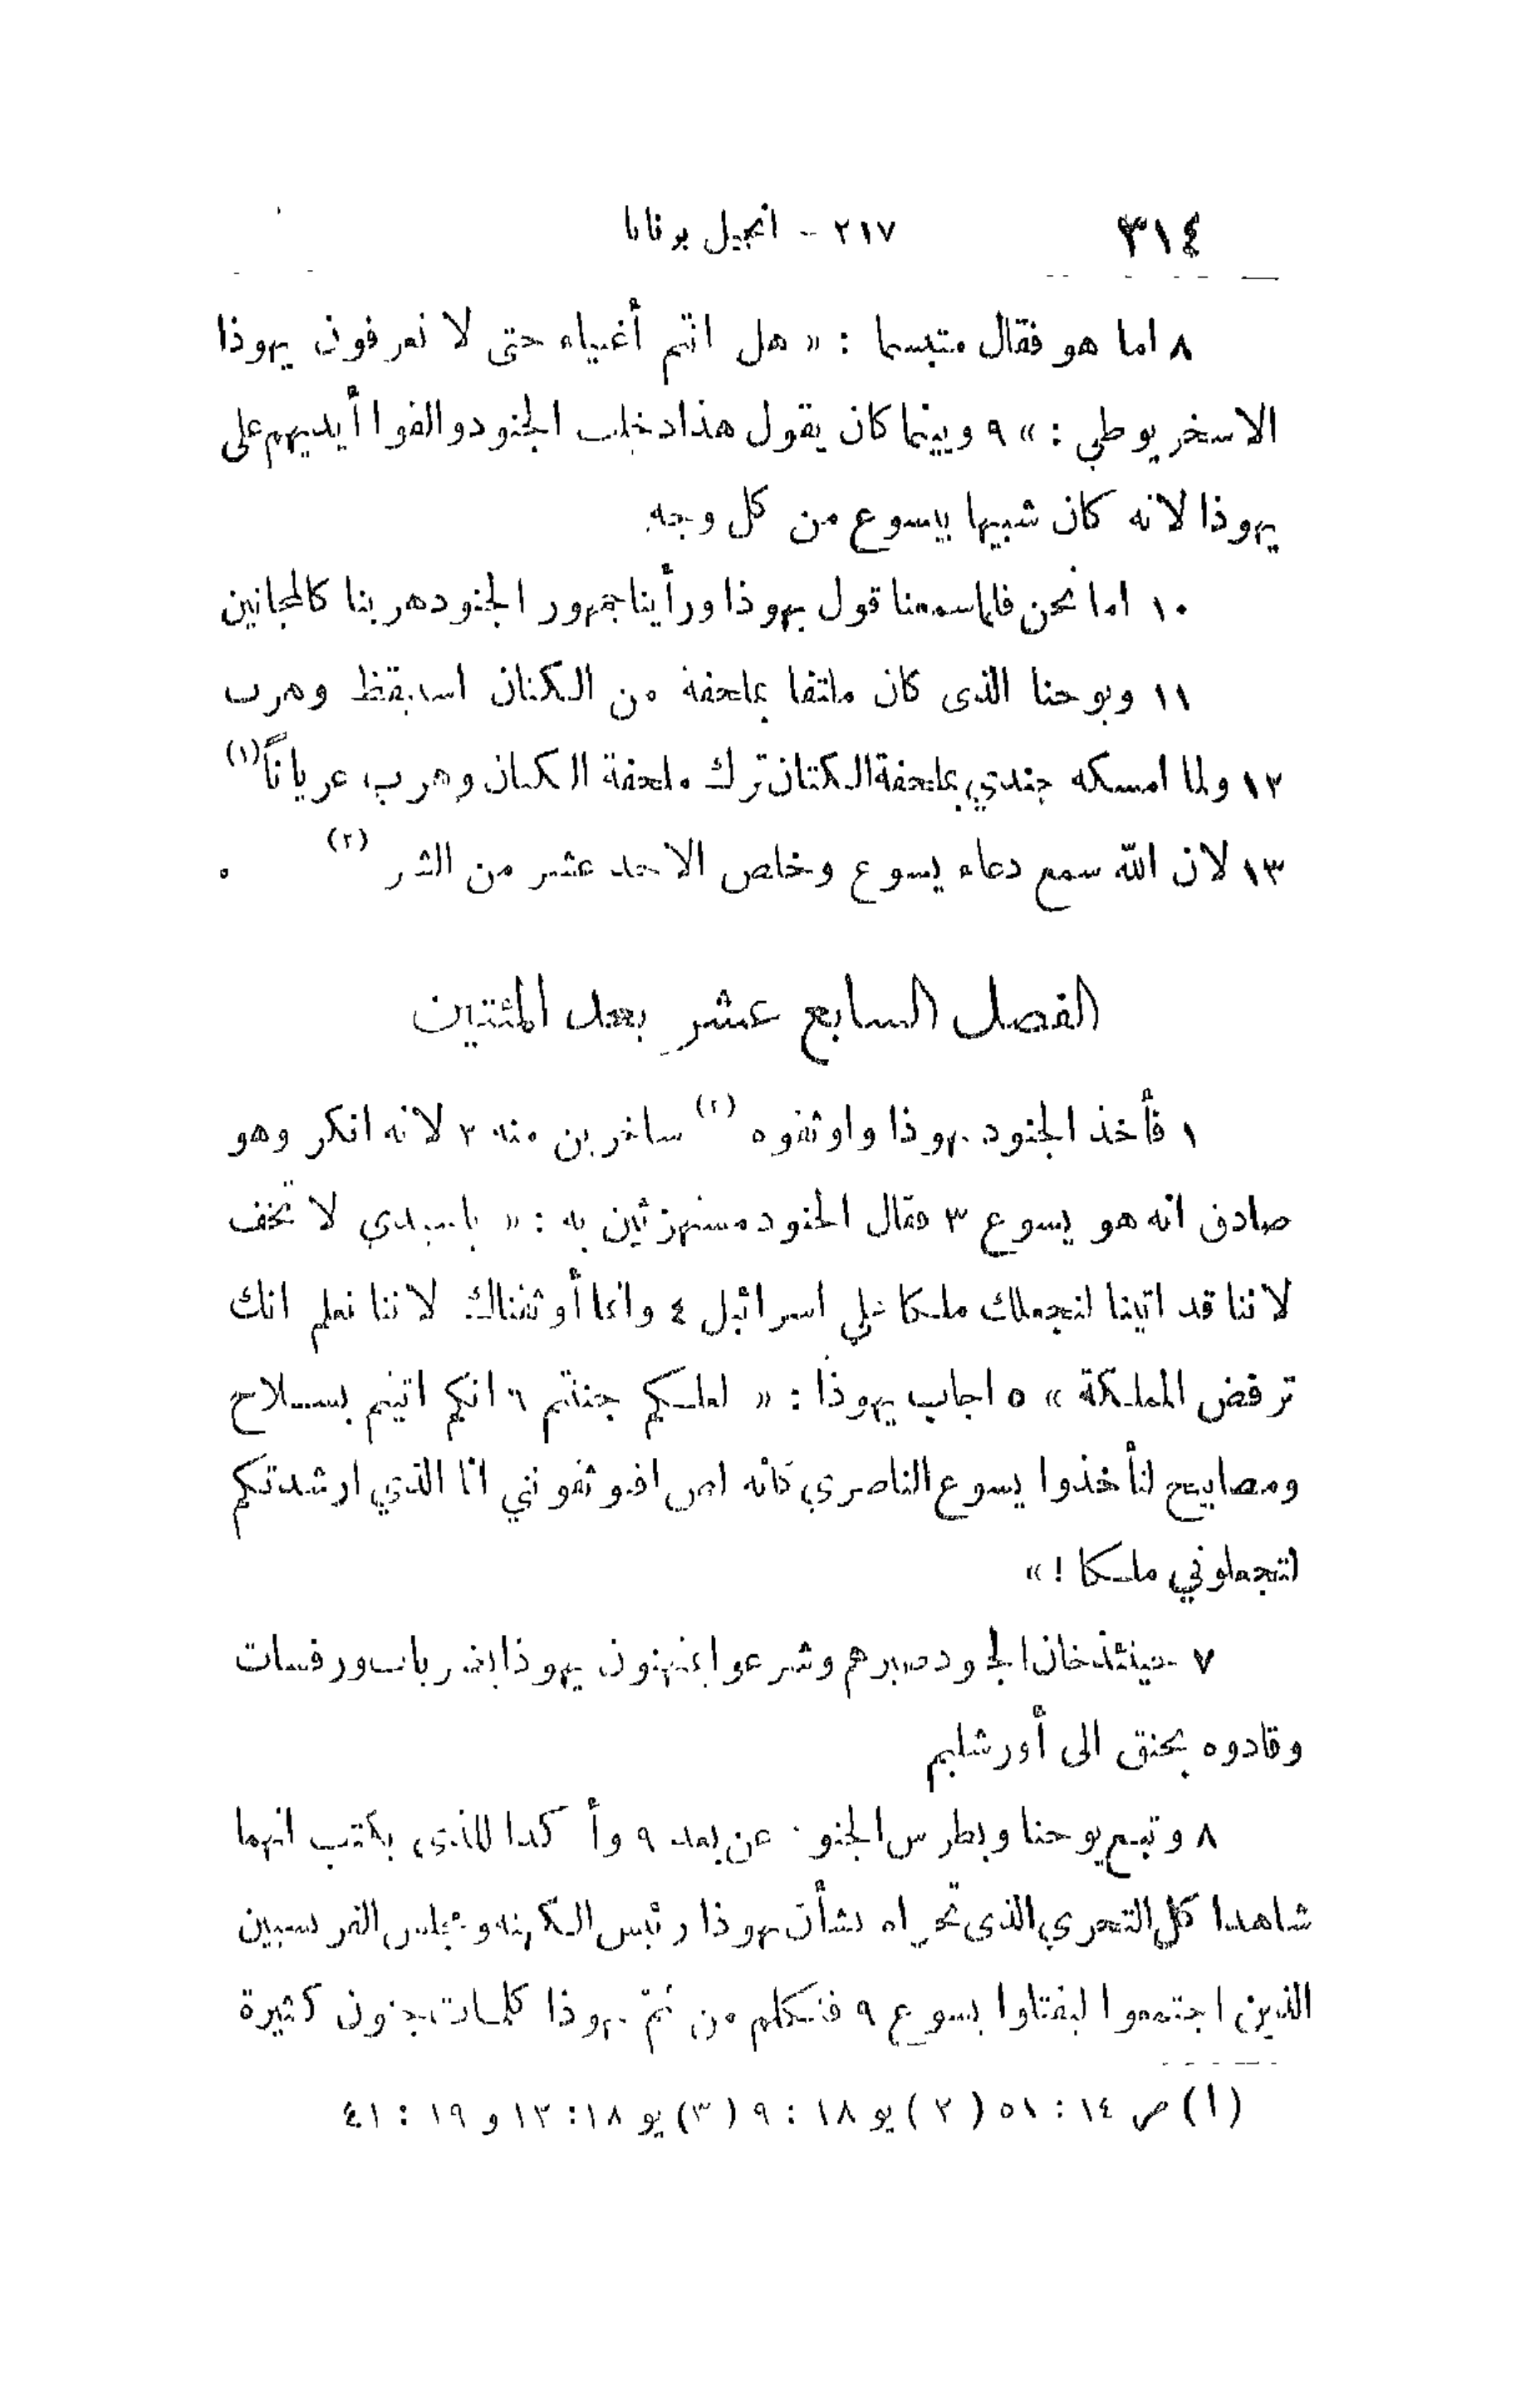 ٣١٤ ٢١٧ - انجيل برنابا
٨ اما هو فقال متبسما : « هل انتم أغبياء حتى لا تعرفون يهوذا
الاسخريوطي : » ٩ وبينما كان يقول هذا دخلت الجنود والقوا أيديهم على
يهوذا لانه كان شبيها بيسوع من كل وجه
١٠ اما نحن فلما سمعنا قول يهوذا ورأينا جمهور الجنود هربنا كالمجانين
١١ ويوحنا الذى كان ملتفا بملحفة من الكتان استيقظ وهرب
١٢ ولما امسكه جندي بملحفة الكتان ترك ملحفة الكتان وهرب عرياناً (١)
١٣ لان الله سمع دعاء يسوع وخلص الاحد عشر من الشر (٢)
الفصل السابع عشر بعد المئتين
١ فأخذ الجنود يهوذا واوثقوه (٢) ساخرين منه ٢ لانه انكر وهو
صادق انه هو يسوع ٣ فقال الجنود مستهزئين به : « ياسيدي لا تخف
لاننا قد اتينا لنجعلك ملكا على اسرائيل ٤ وانما أوثقناك لاننا نعلم انك
ترفض المملكة » ٥ اجاب يهوذا : « لعلكم جننتم ٦ انكم اتيتم بسلاح
ومصابيح لتأخذوا يسوع الناصري كانه لص افتوثقونني انا الذي ارشدتكم
لتجعلوني ملكا ! »
٧ حينئذ خان الجنود صبرهم وشرعوا يمتهنون يهوذا بضربات ورفسات
وقادوه بحنق الى أورشليم
٨ وتبع يوحنا وبطرس الجنود عن بعد ٩ وأكدا للذى يكتب انهما
شاهدا كل التحري الذى تحراه بشأن يهوذا رئيس الكهنة ومجلس الفريسيين
الذين اجتمعوا ليقتلوا يسوع ٩ فتكلم من ثمّ يهوذا كلمات جنون كثيرة
(١) ص ١٤ : ٥١ (٢) يو ١٨ : ٩ (٣) يو ١٨ : ١٢ و ١٩ : ٤١